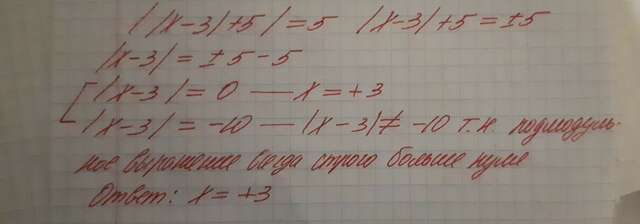 ||x-3|+5|=5 |x-3|+5=±5
|x-3|=±5-5
[|x-3|=0 — x=+3
|x-3|=-10 — |x-3|≠-10 т.к. подмодуль-
ное выражение всегда строго больше нуля
Ответ: x=+3